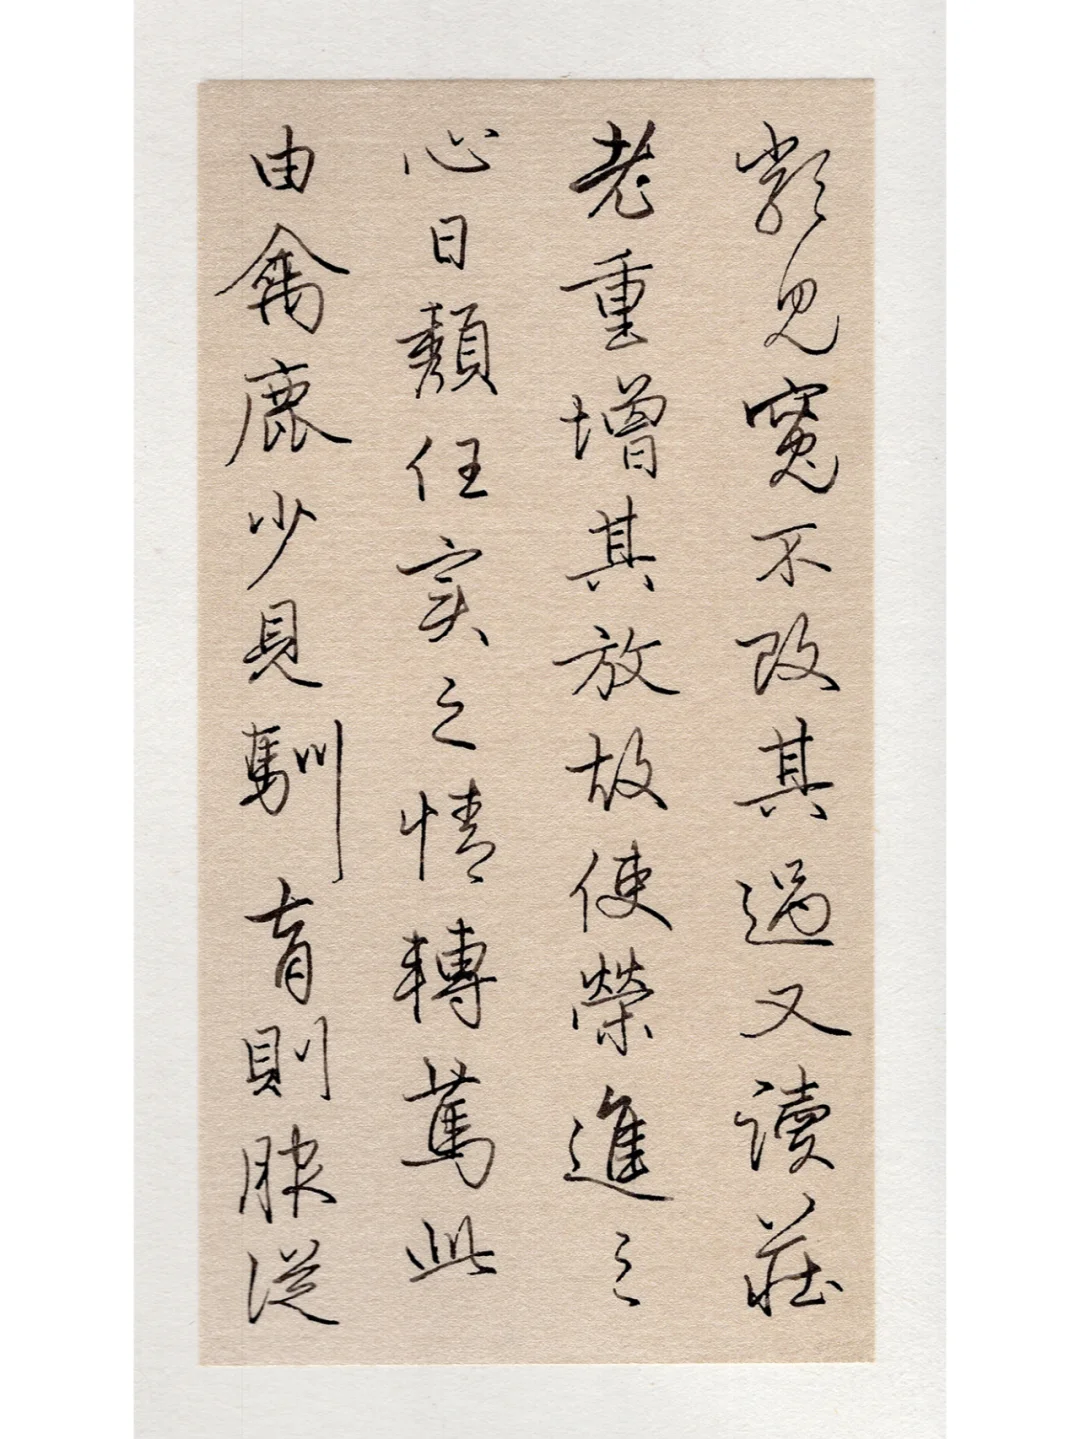 類見寬不改其過又讀莊
老重增其放故使榮進之
心日頹任實之情轉篤此
由禽鹿少見馴育則服從